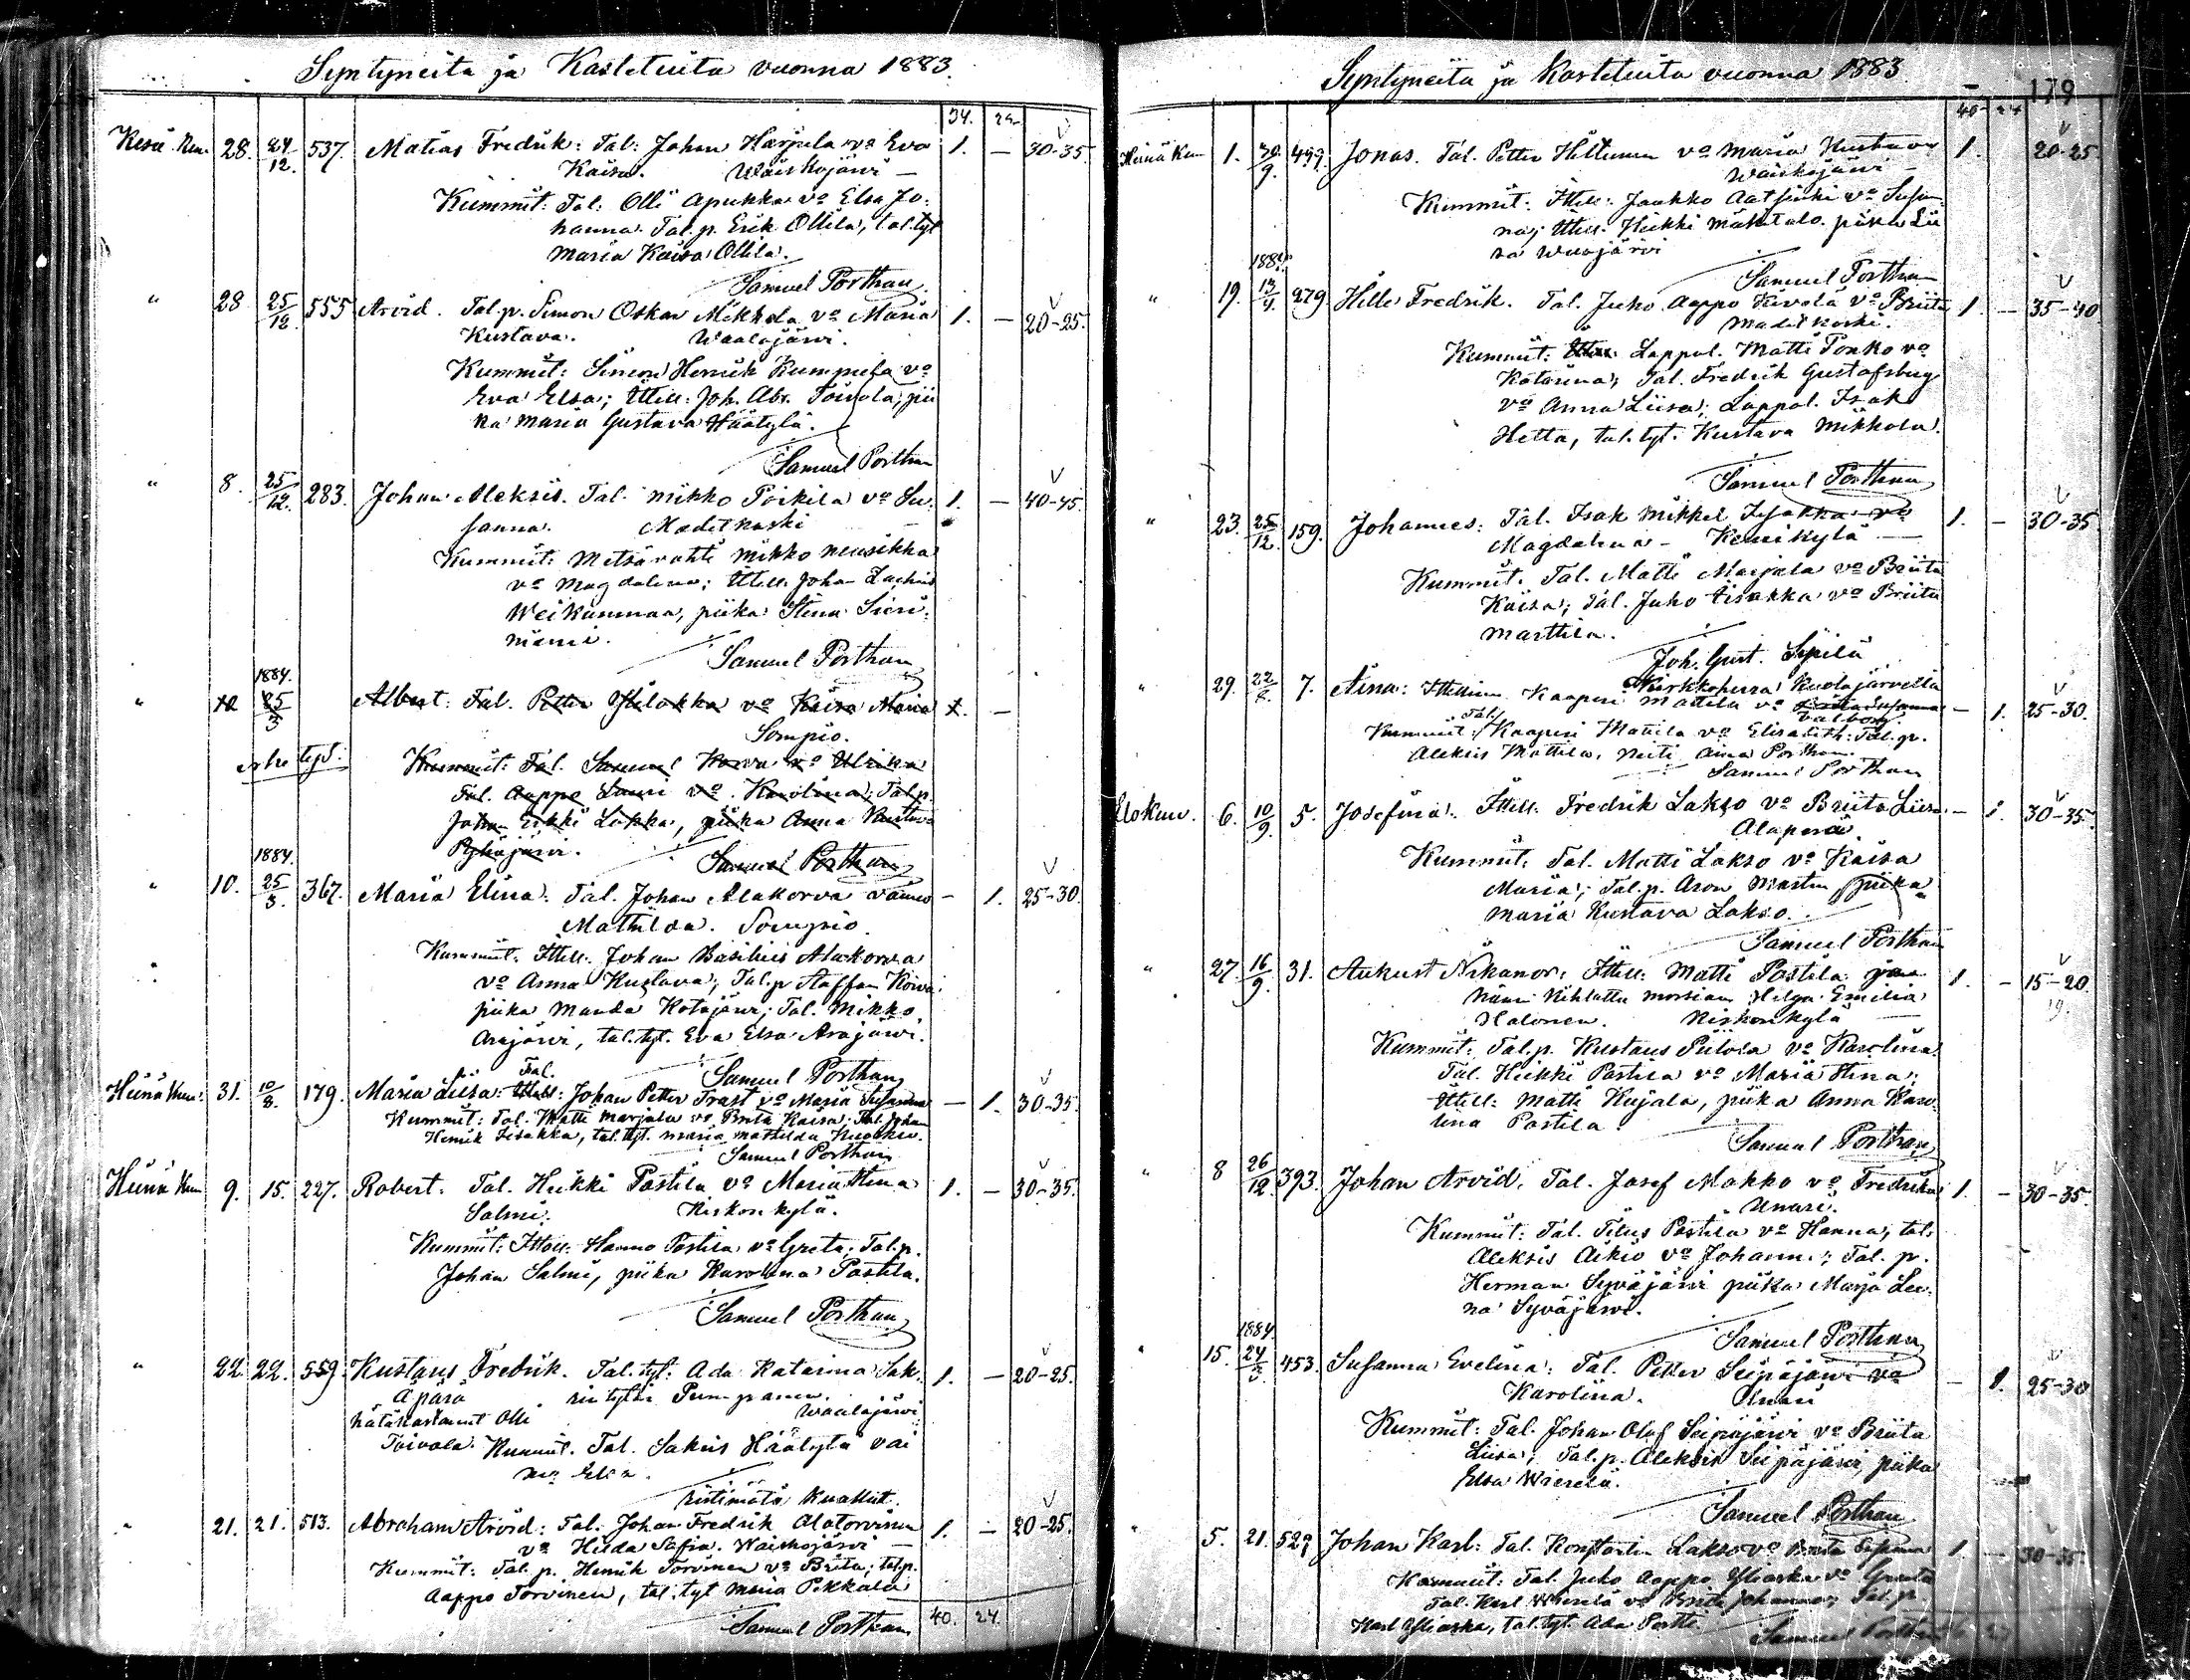 Syntyneita ja Kastetuita vuonna 1883.
34. 22
Kesä Kuu 28. 24/12. 537. Matias Fredrik: Tal: Johan Harjula va Eva 1. — 30-35.
Kaisa. Waiskojärwi —
Kummit: Tal: Olli Apukka va Elsa Jo-
hanna. Tal.p. Erik Ollila, tal.tyt
Maria Kaisa Ollila.
Samuel Porthan.
" 28 25/12 555 Arvid. Tal.p. Simon Oskar Mikkola va Maria 1. — 20-25.
Kustava. Waalajärwi.
Kummit: Simon Henrik Kumpula va
Eva Elsa; Ittell: Joh. Abr. Toivola; pii
ka Maria Gustava Häätylä.
Samuel Porthan
" 8. 25/12. 283. Johan Aleksis. Tal. Mikko Poikila va Su- 1. — 40-45.
sanna. Madetkoski —
Kummit: Metsävahti Mikko
va Magdalena; Ittell: Johan
Weikanmaa, piika Stina Sieri-
niemi.
Samuel Porthan
1884.
" 10 25/3 Albert: Tal. Petter va Kaisa Maria 1. —
Sompio.
Kummit: Tal. Samuel va Ulrika
Tal. Aappo Lauri va Karolina; Tal.p.
Johan Erkki Lakka, piika Anna Kustava
Pyhäjärwi.
Samuel Porthan
1884.
" 10. 25/3. 367. Maria Elina: Tal. Johan Alakorva vaimo — 1. 25-30.
Mathilda. Sompio.
Kummit: Ittell: Johan Basilius Alakorva
va Anna Kustava; Tal.p Staffan
piika Manda Kotajärvi; Tal. Mikko
Arajärvi, tal.tyt. Eva Elsa Arajärwi.
Samuel Porthan
Tal.
Heinä Kuu 31. 10/8. 179. Maria Liisa: Ittell: Johan Petter Trast va Maria Susanna — 1. 30-35.
Kummit: Tal. Matti Marjala va Brita Kaisa; Tal. Johan
Henrik Iisakka, tal.tyt. Maria Mathilda
Samuel Porthan
Heinä Kuu 9. 15. 227. Robert: Tal. Heikki Postila va Maria Stina 1. — 30-35.
Salmi. Kiskonkylä.
Kummit: Ittell: Hannu Postila va Greta; Tal.p.
Johan Salmi, piika Karolina Postila.
Samuel Porthan
" 22. 22. 559. Kustaus Fredrik. Tal.tyt: Ada Katarina Sak- 1. — 20-25.
Äpärä rin tyttö Pumpanen.
hätäkastanut Olli Waalajärwi
Toivola. Kummit. Tal. Sakris Häätylä vai
mo Elsa.
ristimätä kuollut.
" 21. 21. 513. Abraham Arvid: Tal. Johan Fredrik Alatorvinen 1. — 20-25.
va Hilda Sofia. Waiskojärwi —
Kummit: Tal. p. Henrik Torvinen va Brita; tal.p.
Aappo Torvinen, tal.tyt Maria Pekkala
40. 24.
Samuel Porthan
Syntyneita ja Kastetuita vuonna 1883 179
40 24
Heinä Kuu 1. 30/9. 499. Jonas. Tal. Petter Hiltunen va Maria Kustava 1. 20-25.
Waiskojärwi —
Kummit: Ittell: Jaakko Aatsinki va Susan-
na; Ittell: Heikki Mäkitalo. piika Lii
sa Wuojärvi
Samuel Porthan
1884.
" 19. 13/4. 279 Hille Fredrik. Tal. Juho Aappo va Briita 1. — 35-40
Madetkoski.
Kummit: Lappal. Matti Ponko va
Katarina; Tal. Fredrik Gustafsberg
va Anna Liisa; Lappal. Isak
Hetta, tal.tyt. Kustava Mikkola.
Samuel Porthan
" 23. 25/12. 159. Johannes: Tal. Isak Mikkel Iisakka va 1. — 30-35
Magdalena — Kemikylä —
Kummit. Tal. Matti Marjala va Briita
Kaisa; Tal. Juho Iisakka va Briita
Marttila.
Joh. Gust. Sipilä
Kirkkoherra Kuolajärvellä
" 29. 22/8. 7. Aina: Ittellinen Kaaperi Mattila va — 1. 25-30.
Valborg.
Kummit: Tal. Kaaperi Mattila va Elisabeth: Tal.p.
Aleksis Mattila, Neiti Aina Porthan.
Samuel Porthan
Elokuu. 6. 10/9. 5. Josefina. Ittell: Fredrik Lakso va Briita Liisa — 1. 30-35.
Alaperä.
Kummit: Tal. Matti Lakso va Kaisa
Maria; Tal.p. Aron Martin piika
Maria Kustava Lakso.
Samuel Porthan
" 27. 16/9. 31. Aukust Nikanor: Ittell: Matti Postila ja 1. — 15-20.
hänen kihlattu morsian Hilga Emilia 19.
Halonen. Kiskonkylä —
Kummit: Tal.p. Kustaus va Karolina.
Tal. Heikki Postila va Maria Stina;
Ittell: Matti Kujala, piika Anna Karo-
lina Postila
Samuel Porthan
" 8 26/12. 393. Johan Arvid. Tal. Josef Mokko va Fredrika 1. — 30-35.
Unari.
Kummit: Tal. Titus Postila va Hanna; tal.
Aleksis Aikio va Johanna; Tal. p.
Herman Syväjärvi piika Marja Lee-
na Syväjärvi.
Samuel Porthan
1884.
" 15. 24/3. 453. Susanna Evelina: Tal. Petter Seipäjärwi va — 1. 25-30
Karolina. Unari
Kummit: Tal. Johan Olof Seipäjärvi va Briita
Liisa; Tal.p. Aleksis Seipäjärvi, piika
Elsa Wierelä.
Samuel Porthan
" 5. 21. 529 Johan Karl: Tal. Konstantin Lakso va 1. — 30-35.
Kummit: Tal. Juho Aappo va Greta
Tal. Karl Wierelä va Briita Johanna; Tal.p.
Karl, tal.tyt. Ada
Samuel Porthan